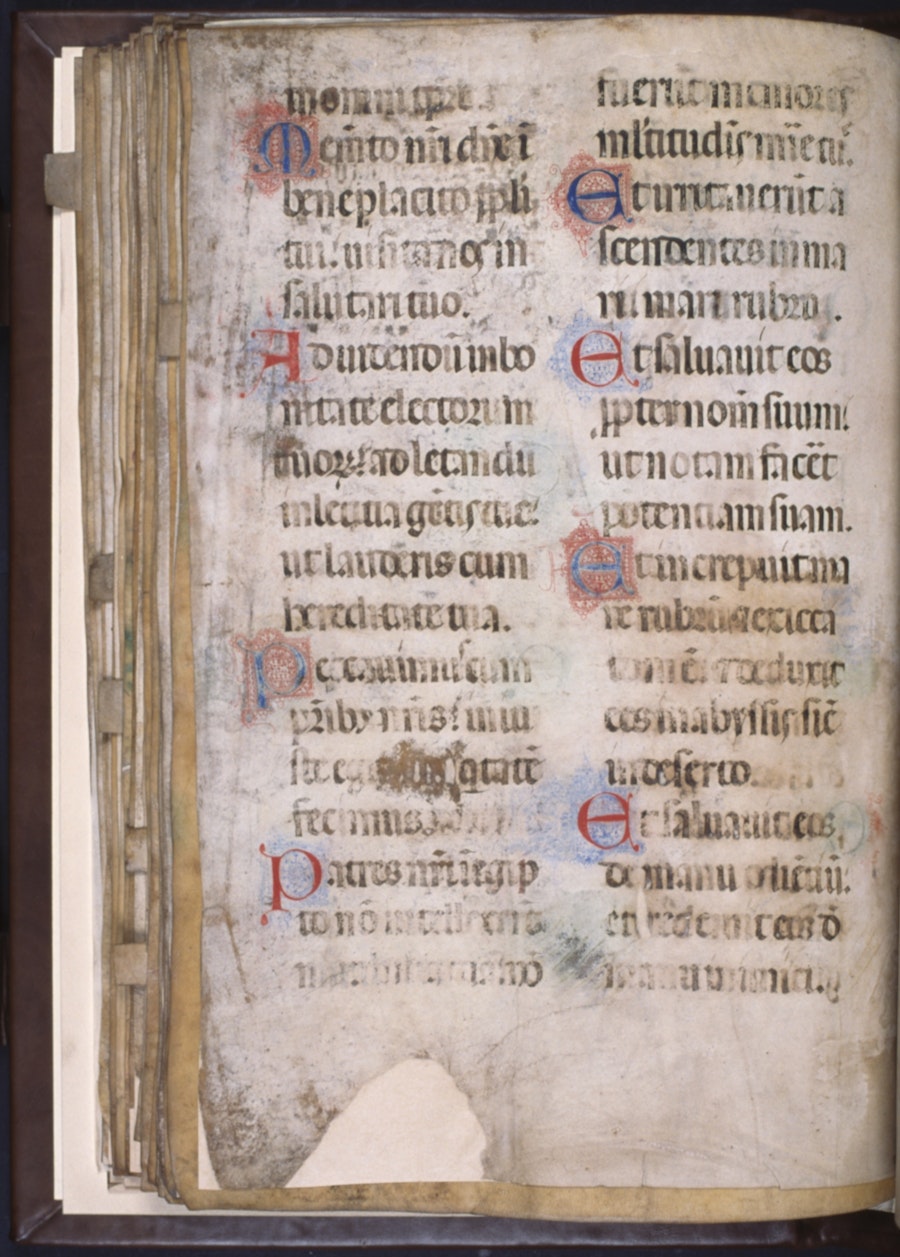 m omni tp̄re.
Mem̄to nr̄i dn̄e ī
beneplacito ppl̄i
tui: uisita nos in
salutari tuo.
Ad uidendū in bo
nitate electorum
tuoꝝ: ad letandū
in letitia gētis tue:
ut lauderis cum
hereditate tua.
Peccauimus cum
pr̄ibꝫ nr̄is: iniu
ste egimus iq̄tatē
fecimus.
Patres nr̄i ī egip
to nō intellexerūt
mirabilia tua: nō
fuerūt memores
ml̄titudīs mīe tue.
Et irritauerūt a
scendentes in ma
re mare rubrū.
Et saluauit eos
ꝓpter nom̄ suum:
ut notam facēt
potentiam suam.
Et increpuit ma
re rubrū ⁊ exicca
tum ē: ⁊ deduxit
eos in abyssis sic̄
in deserto.
Et saluauit eos
de manu odiētiū:
et redemit eos d̄
manu inimici.